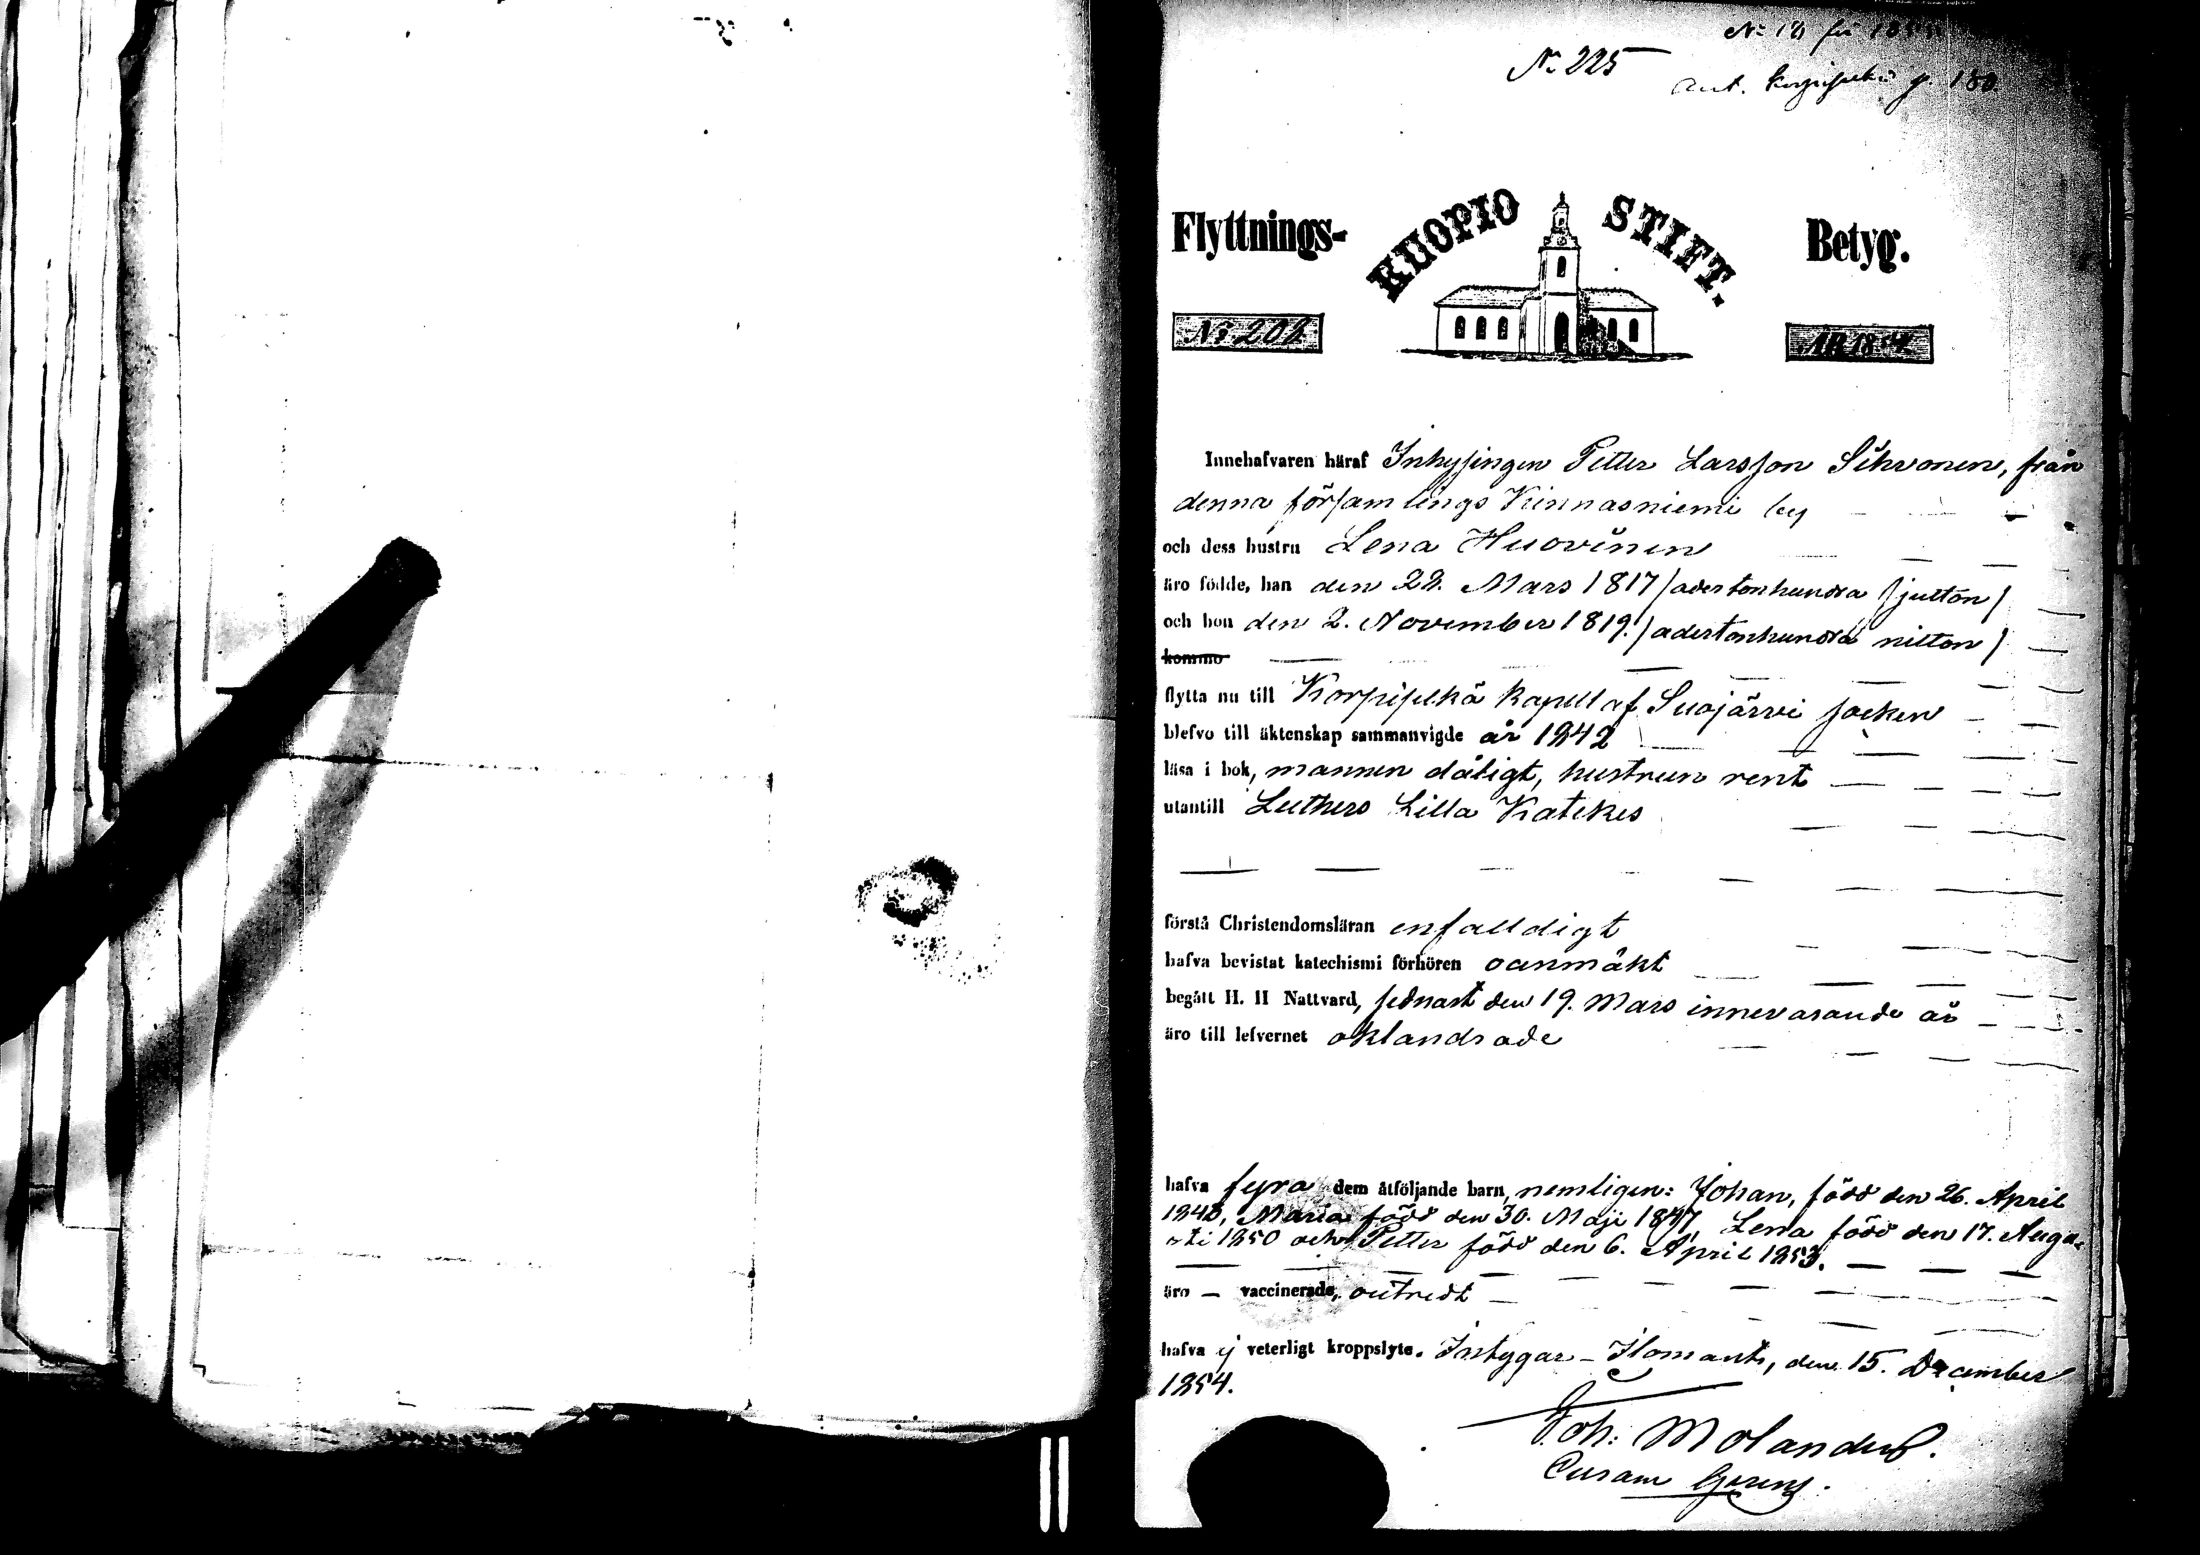 N:o 225
ant. Korpiselkä p. 180
Flyttnings-
KUOPIO STIFT.
Betyg.
No 202
ÅR 1854
Innehafvaren häraf Inhysingen Petter Larsson Sihvonen, från
denna församlings Kinnasniemi by
och dess hustru Lena Huovinen
äro födde, han den 22. Mars 1817 /adertonhundra sjutton/
och hon den 2. November 1819. /adertonhundra nitton/
komma
flytta nu till Korpiselkä kapell af Suojärvi socken
blefvo till äktenskap sammanvigde år 1842
läsa i bok, mannen dåligt, hustrun rent
utantill Luthers Lilla Katekes
förstå Christendomsläran enfalldigt
hafva bevistat katechismi förhören oanmäkt
begått H. H Nattvard, sednast den 19. Mars innevarande år
äro till lefvernet oklandrade
hafva fyra dem åtföljande barn, nemligen: Johan, född den 26. April
1843, Maria född den 30. Maji 1847, Lena född den 17. Augu-
sti 1850 och Petter född den 6. April 1853.
äro – vaccinerade,
hafva ej veterligt kroppslyte. Intygar – Ilomants, den 15. December
1854.
Joh: Molander.
Curam Gerens.